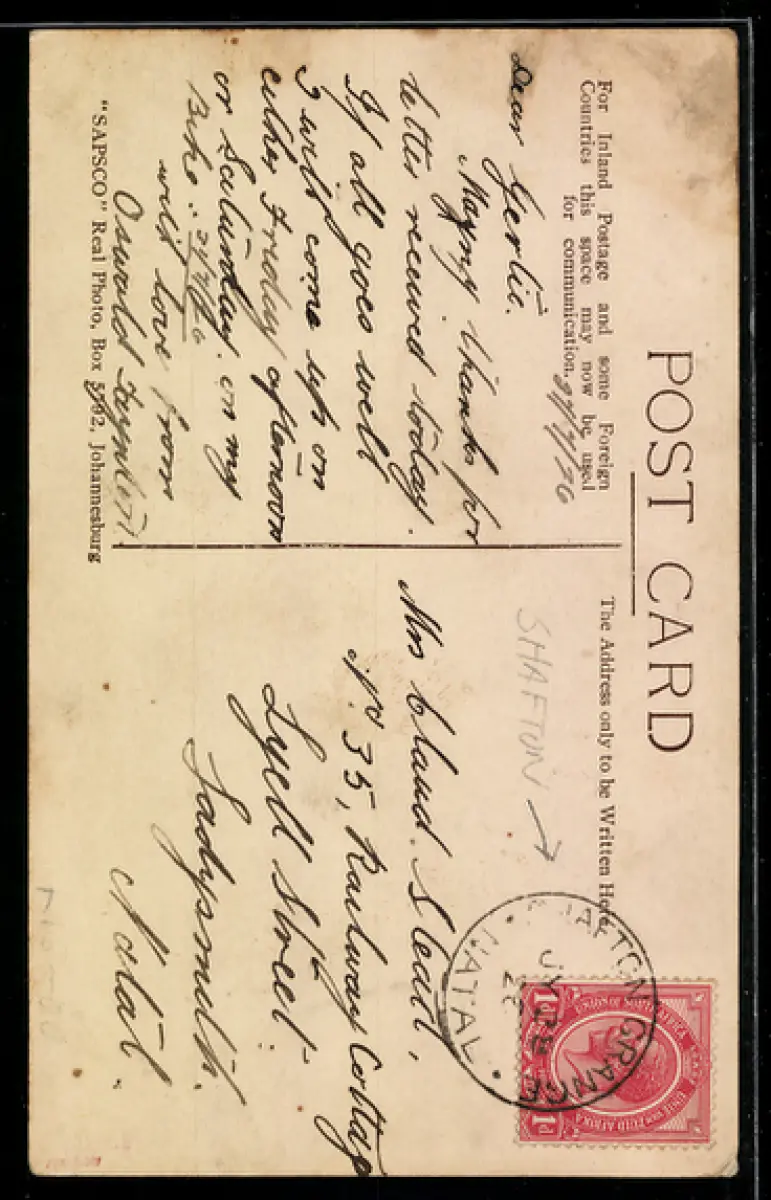 POST CARD
For Inland Postage and some Foreign
Countries this space may now be used
for communication.
The Address only to be Written Here
Dear Gertie.
Many thanks for
letter received today.
If all goes well
I will come up on
either Friday afternoon
or Saturday. on my
Bike.
with love from
Oswald
"SAPSCO" Real Photo, Box 5792, Johannesburg
SHAFTON →
Mrs Claud. Slead,
No 35, Railway Cottage
Lyell Street.
Ladysmith.
Natal.
GRANGE
NATAL
UNIE VAN ZUID AFRIKA
1d 1d